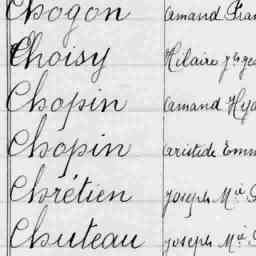 Chogon Amand Fran
Choisy Hilaire
Chopin Amand Hya
Chopin Aristide Emm
Chrétien Joseph Mie
Chuteau Joseph Mie